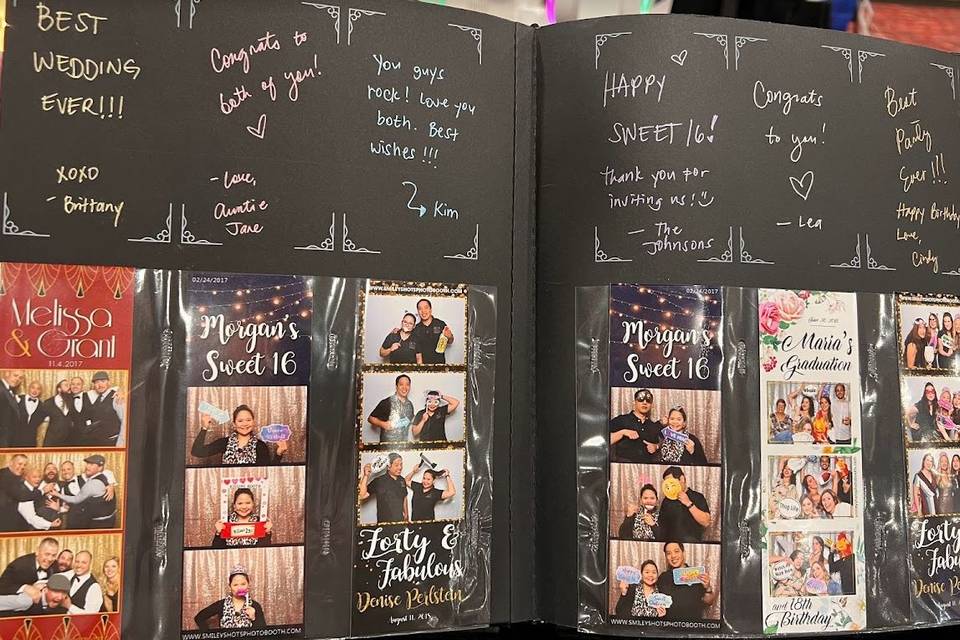 BEST
WEDDING
EVER!!!
XOXO
- Brittany
Congrats to
both of you!
- Love,
Auntie
Jane
You guys
rock! Love you
both. Best
wishes!!!
Kim
HAPPY
SWEET 16!
thank you for
inviting us!
- The
Johnsons
Congrats
to you!
- Lea
Best
Party
Ever!!!
Happy Birthday
Love,
Cindy
Melissa
& Grant
11.4.2017
02/24/2017
Morgan's
Sweet 16
WWW.SMILEYSHOTSPHOTOBOOTH.COM
WWW.SMILEYSHOTSPHOTOBOOTH.COM
Forty &
Fabulous
Denise Perlstein
August 11, 2018
02/24/2017
Morgan's
Sweet 16
WWW.SMILEYSHOTSPHOTOBOOTH.COM
Maria's
Graduation
Thug Life
and 18th
Birthday
Forty
Fabulous
Denise
August 11, 2018